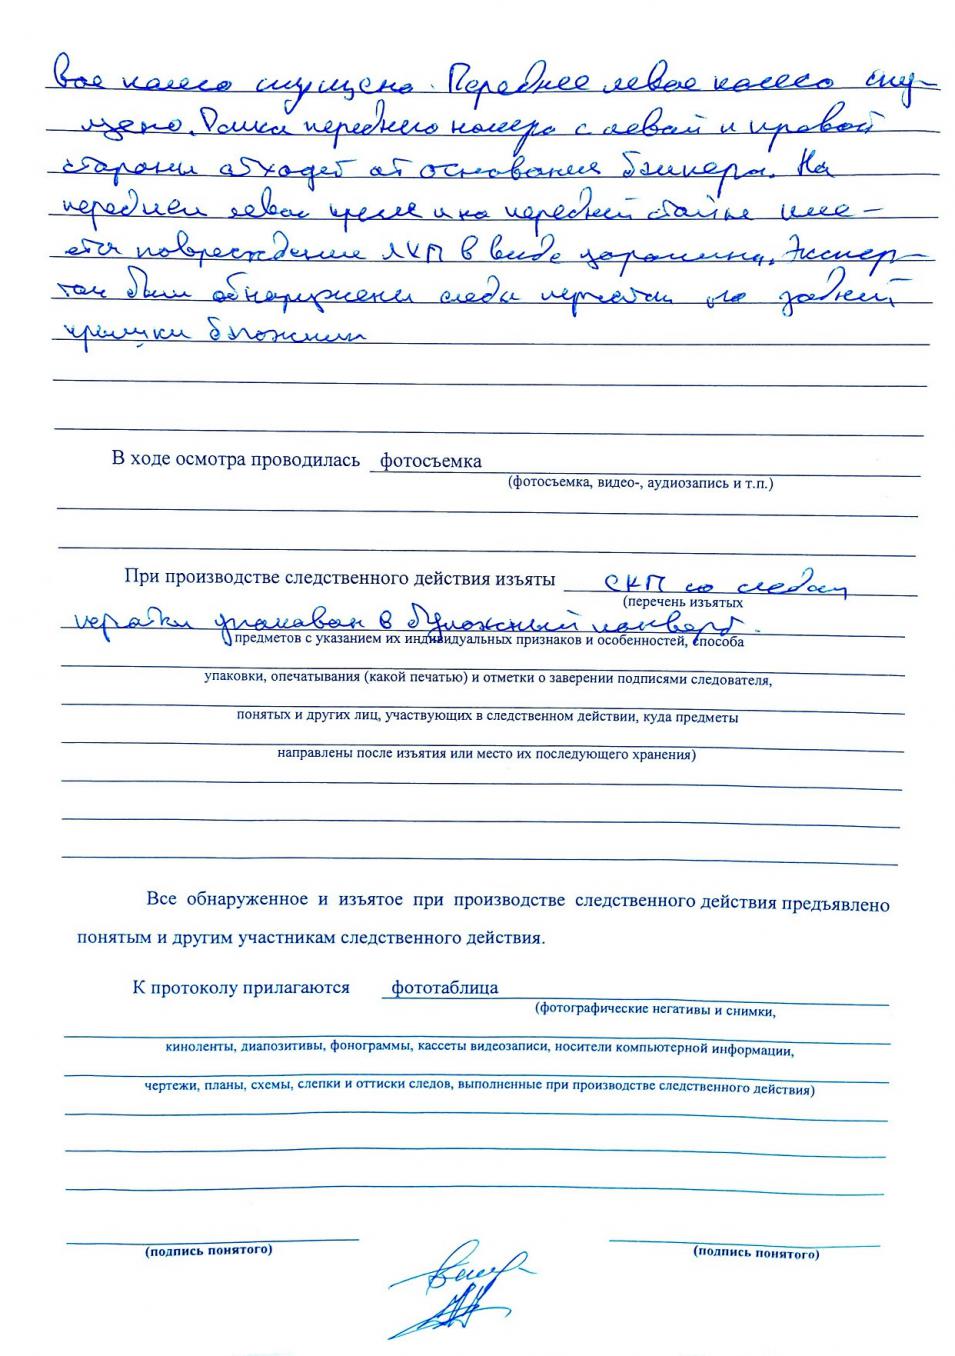 вое колесо спущено. Переднее левое колесо спу-
щено. Рамка переднего номера с левой и правой
стороны отходит от основания бампера. На
переднем левом крыле и на передней стойке име-
ется повреждение ЛКП в виде царапины. Экспер-
том были обнаружены следы перчатки на задней
крышки багажник
В ходе осмотра проводилась фотосъемка
(фотосъемка, видео-, аудиозапись и т.п.)
При производстве следственного действия изъяты СКП со следам
(перечень изъятых
перчатки упакован в бумажный конверт.
предметов с указанием их индивидуальных признаков и особенностей, способа
упаковки, опечатывания (какой печатью) и отметки о заверении подписями следователя,
понятых и других лиц, участвующих в следственном действии, куда предметы
направлены после изъятия или место их последующего хранения)
Все обнаруженное и изъятое при производстве следственного действия предъявлено
понятым и другим участникам следственного действия.
К протоколу прилагаются фототаблица
(фотографические негативы и снимки,
киноленты, диапозитивы, фонограммы, кассеты видеозаписи, носители компьютерной информации,
чертежи, планы, схемы, слепки и оттиски следов, выполненные при производстве следственного действия)
(подпись понятого) (подпись понятого)